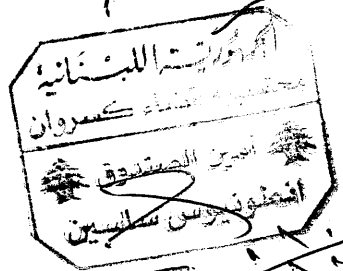 الجمهورية اللبنانية
محتسبية قضاء كسروان
امين الصندوق
انطونيوس سلامين